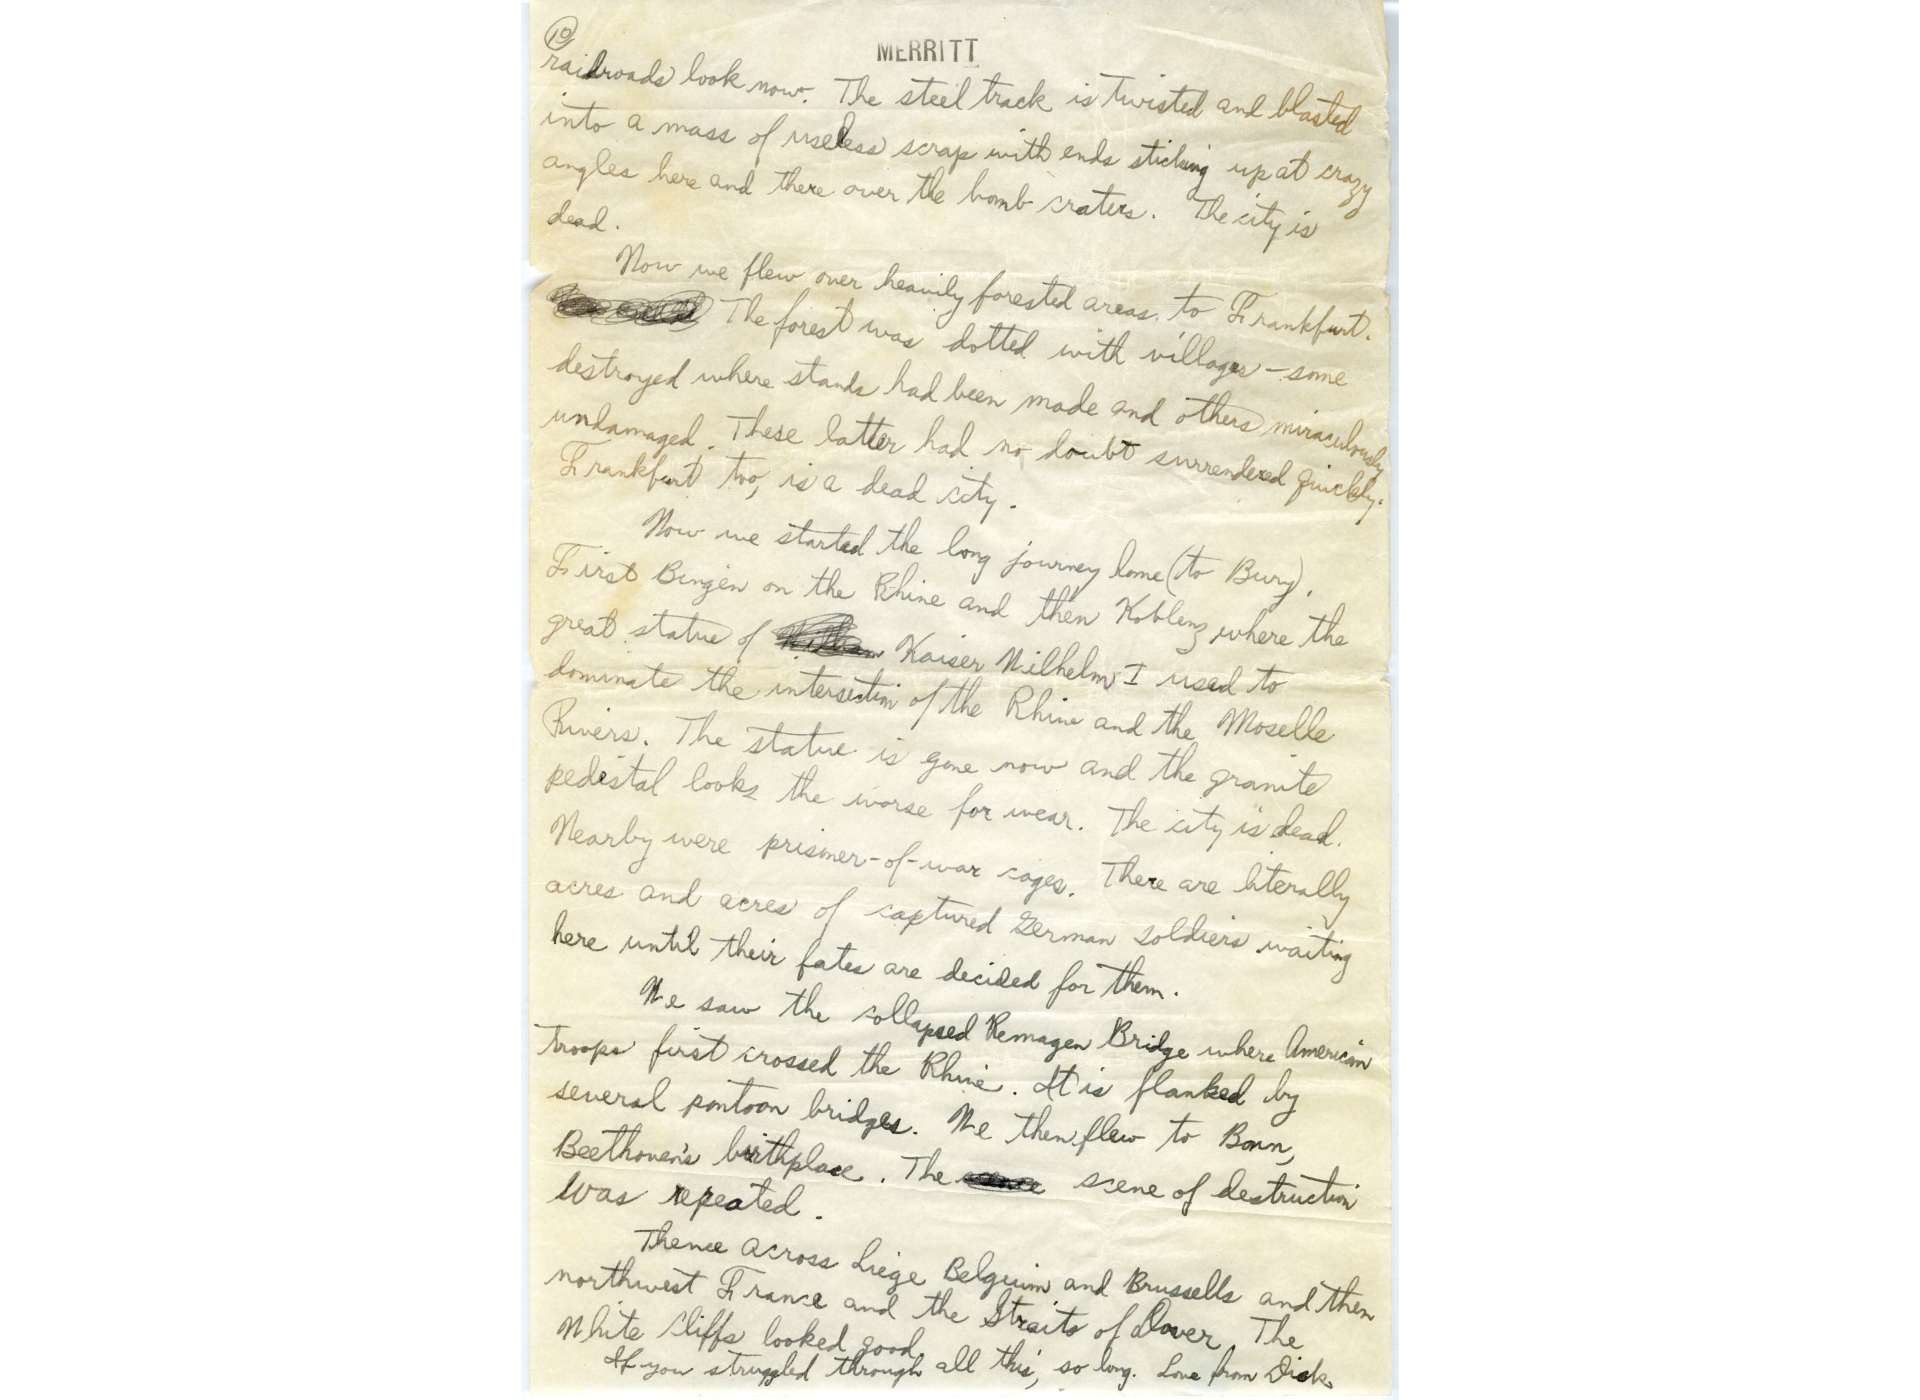 10
MERRITT
railroads look now. The steel track is twisted and blasted
into a mass of useless scrap with ends sticking up at crazy
angles here and there over the bomb craters. The city is
dead.
Now we flew over heavily forested areas to Frankfurt.
The forest was dotted with villages - some
destroyed where stands had been made and others miraculously
undamaged. These latter had no doubt surrendered quickly.
Frankfurt too, is a dead city.
Now we started the long journey home (to Bury).
First Bingen on the Rhine and then Koblenz where the
great statue of Kaiser Wilhelm I used to
dominate the intersection of the Rhine and the Moselle
Rivers. The statue is gone now and the granite
pedistal looks the worse for wear. The city is dead.
Nearby were prisoner-of-war cages. There are literally
acres and acres of captured German soldiers waiting
here until their fates are decided for them.
We saw the collapsed Remagen Bridge where American
troops first crossed the Rhine. It is flanked by
several pontoon bridges. We then flew to Bonn,
Beethoven's birthplace. The scene of destruction
was repeated.
Thence across Liege Belguim and Brussells and then
northwest France and the Straits of Dover. The
White Cliffs looked good.
If you struggled through all this, so long. Love from Dick.